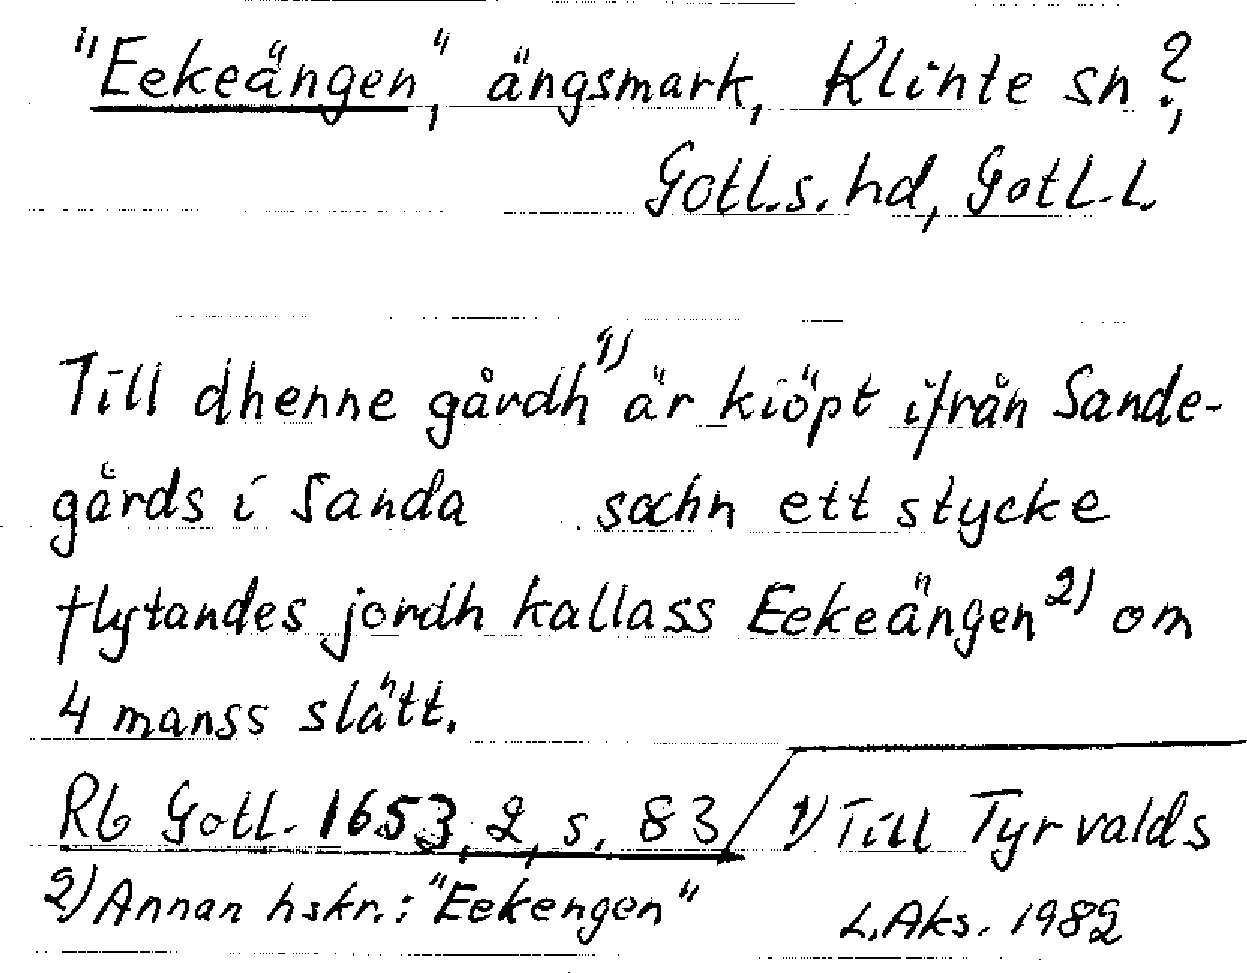 "Eekeängen", ängsmark, Klinte sn?,
Gotl.s. hd, Gotl. l.
Till dhenne gårdh 1) är kiöpt ifrån Sande-
gårds i Sanda sochn ett stycke
flytandes jordh kallass Eekeängen 2) om
4 manss slätt.
Rb Gotl. 1653, 2, s. 83 1) Till Tyrvalds
2) Annan hskr.: "Eekengen" L. Aks. 1982